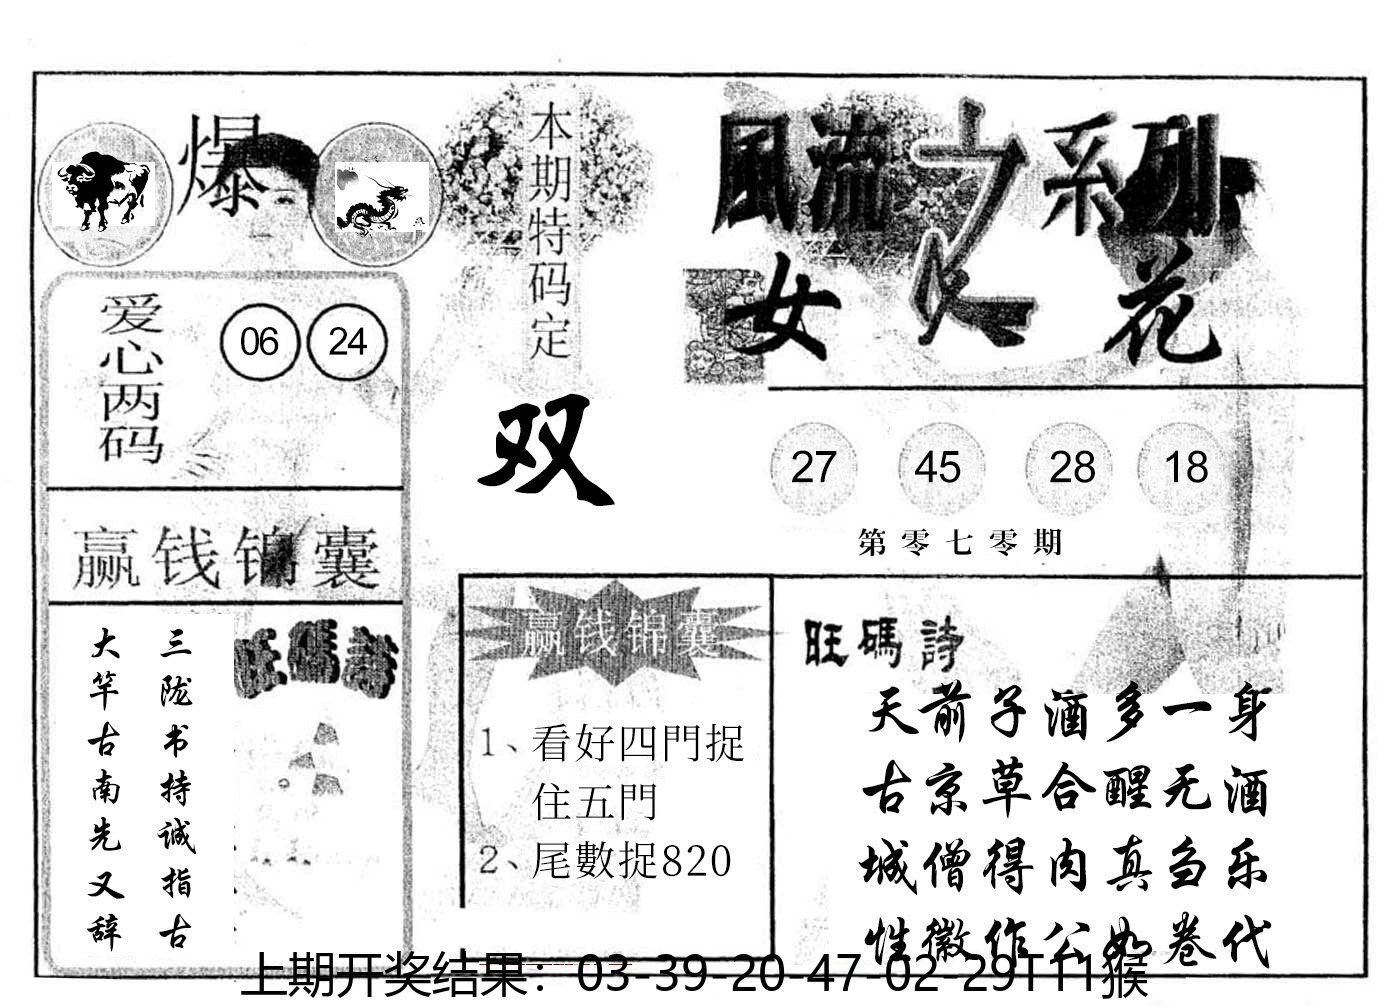 爆
爱心两码
06 24
赢钱锦囊
三陇书持诚指古
大竿古南先又辞
旺碼詩
本期特码定
双
風流之系列
女人花
27 45 28 18
第零七零期
赢钱锦囊
1、看好四門捉
住五門
2、尾數捉820
旺碼詩
天前子酒多一身
古京草合醒无酒
城僧得肉真刍乐
性徽作公如卷代
上期开奖结果：03-39-20-47-02-29T11猴